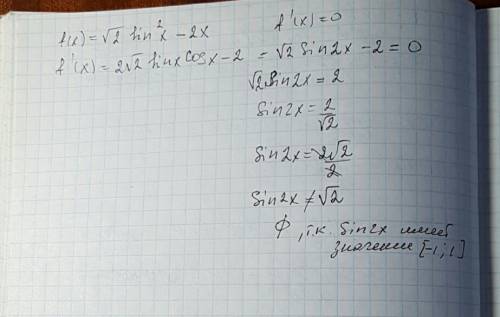 f(x) = √2 sin²x − 2x
f'(x) = 0
f'(x) = 2√2 sinx cosx − 2 = √2 sin2x − 2 = 0
√2 sin2x = 2
sin2x = 2/√2
sin2x = 2√2/2
sin2x ≠ √2
∅, т.к. sin2x имеет
значение [-1; 1]